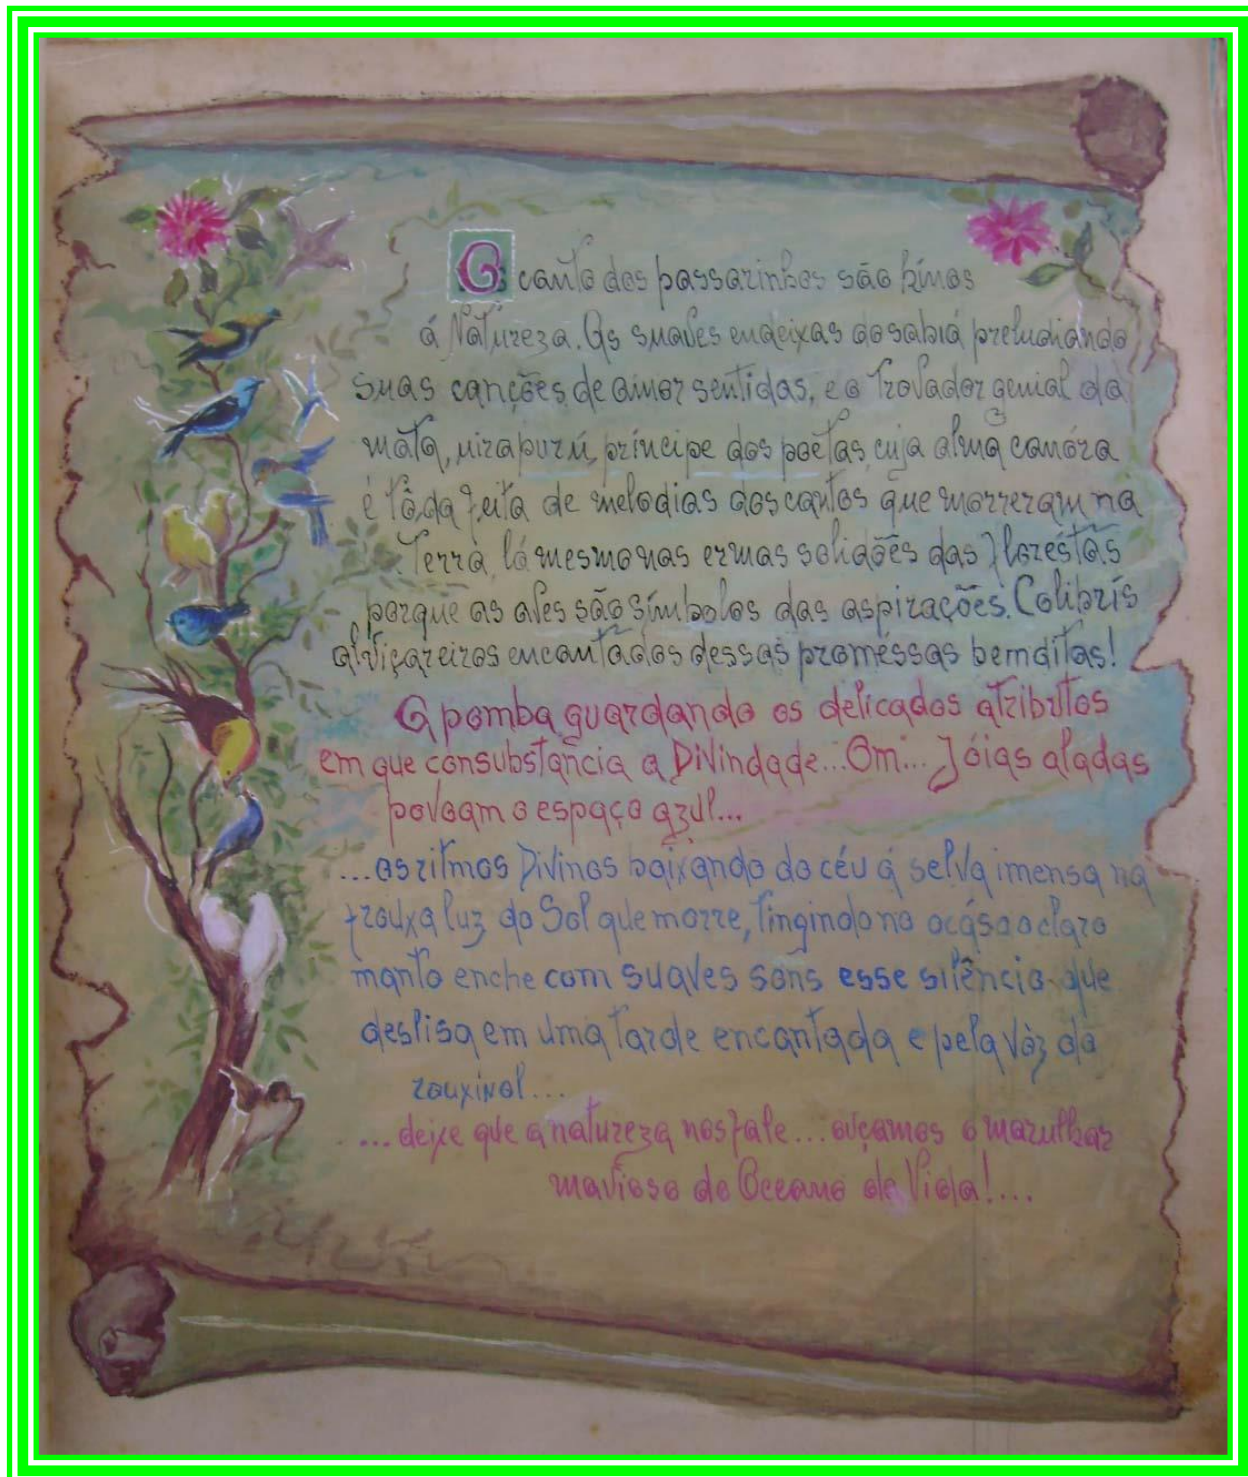 O canto dos passarinhos são hinos
á Natureza. As suaves endeixas do sabiá preludiando
suas canções de amor sentidas, e o Trovador genial da
mata, uirapurú, príncipe dos poetas, cuja alma canóra
é tôda feita de melodias dos cantos que morreram na
Terra, lá mesmo nas ermas solidões das florestas
porque as aves são símbolos das aspirações. Colibrís
alviçareiros encantados dessas promessas bemditas!
A pomba guardando os delicados atributos
em que consubstancia a Divindade... Om... Jóias aladas
povoam o espaço azul...
...os ritmos Divinos baixando do céu á selva imensa na
frouxa luz do Sol que morre, tingindo no ocáso o claro
manto enche com suaves sons esse silêncio que
deslisa em uma tarde encantada e pela vóz do
rouxinol...
...deixe que a natureza nos fale... ouçamos o marulhar
mavioso do Oceano da Vida!...